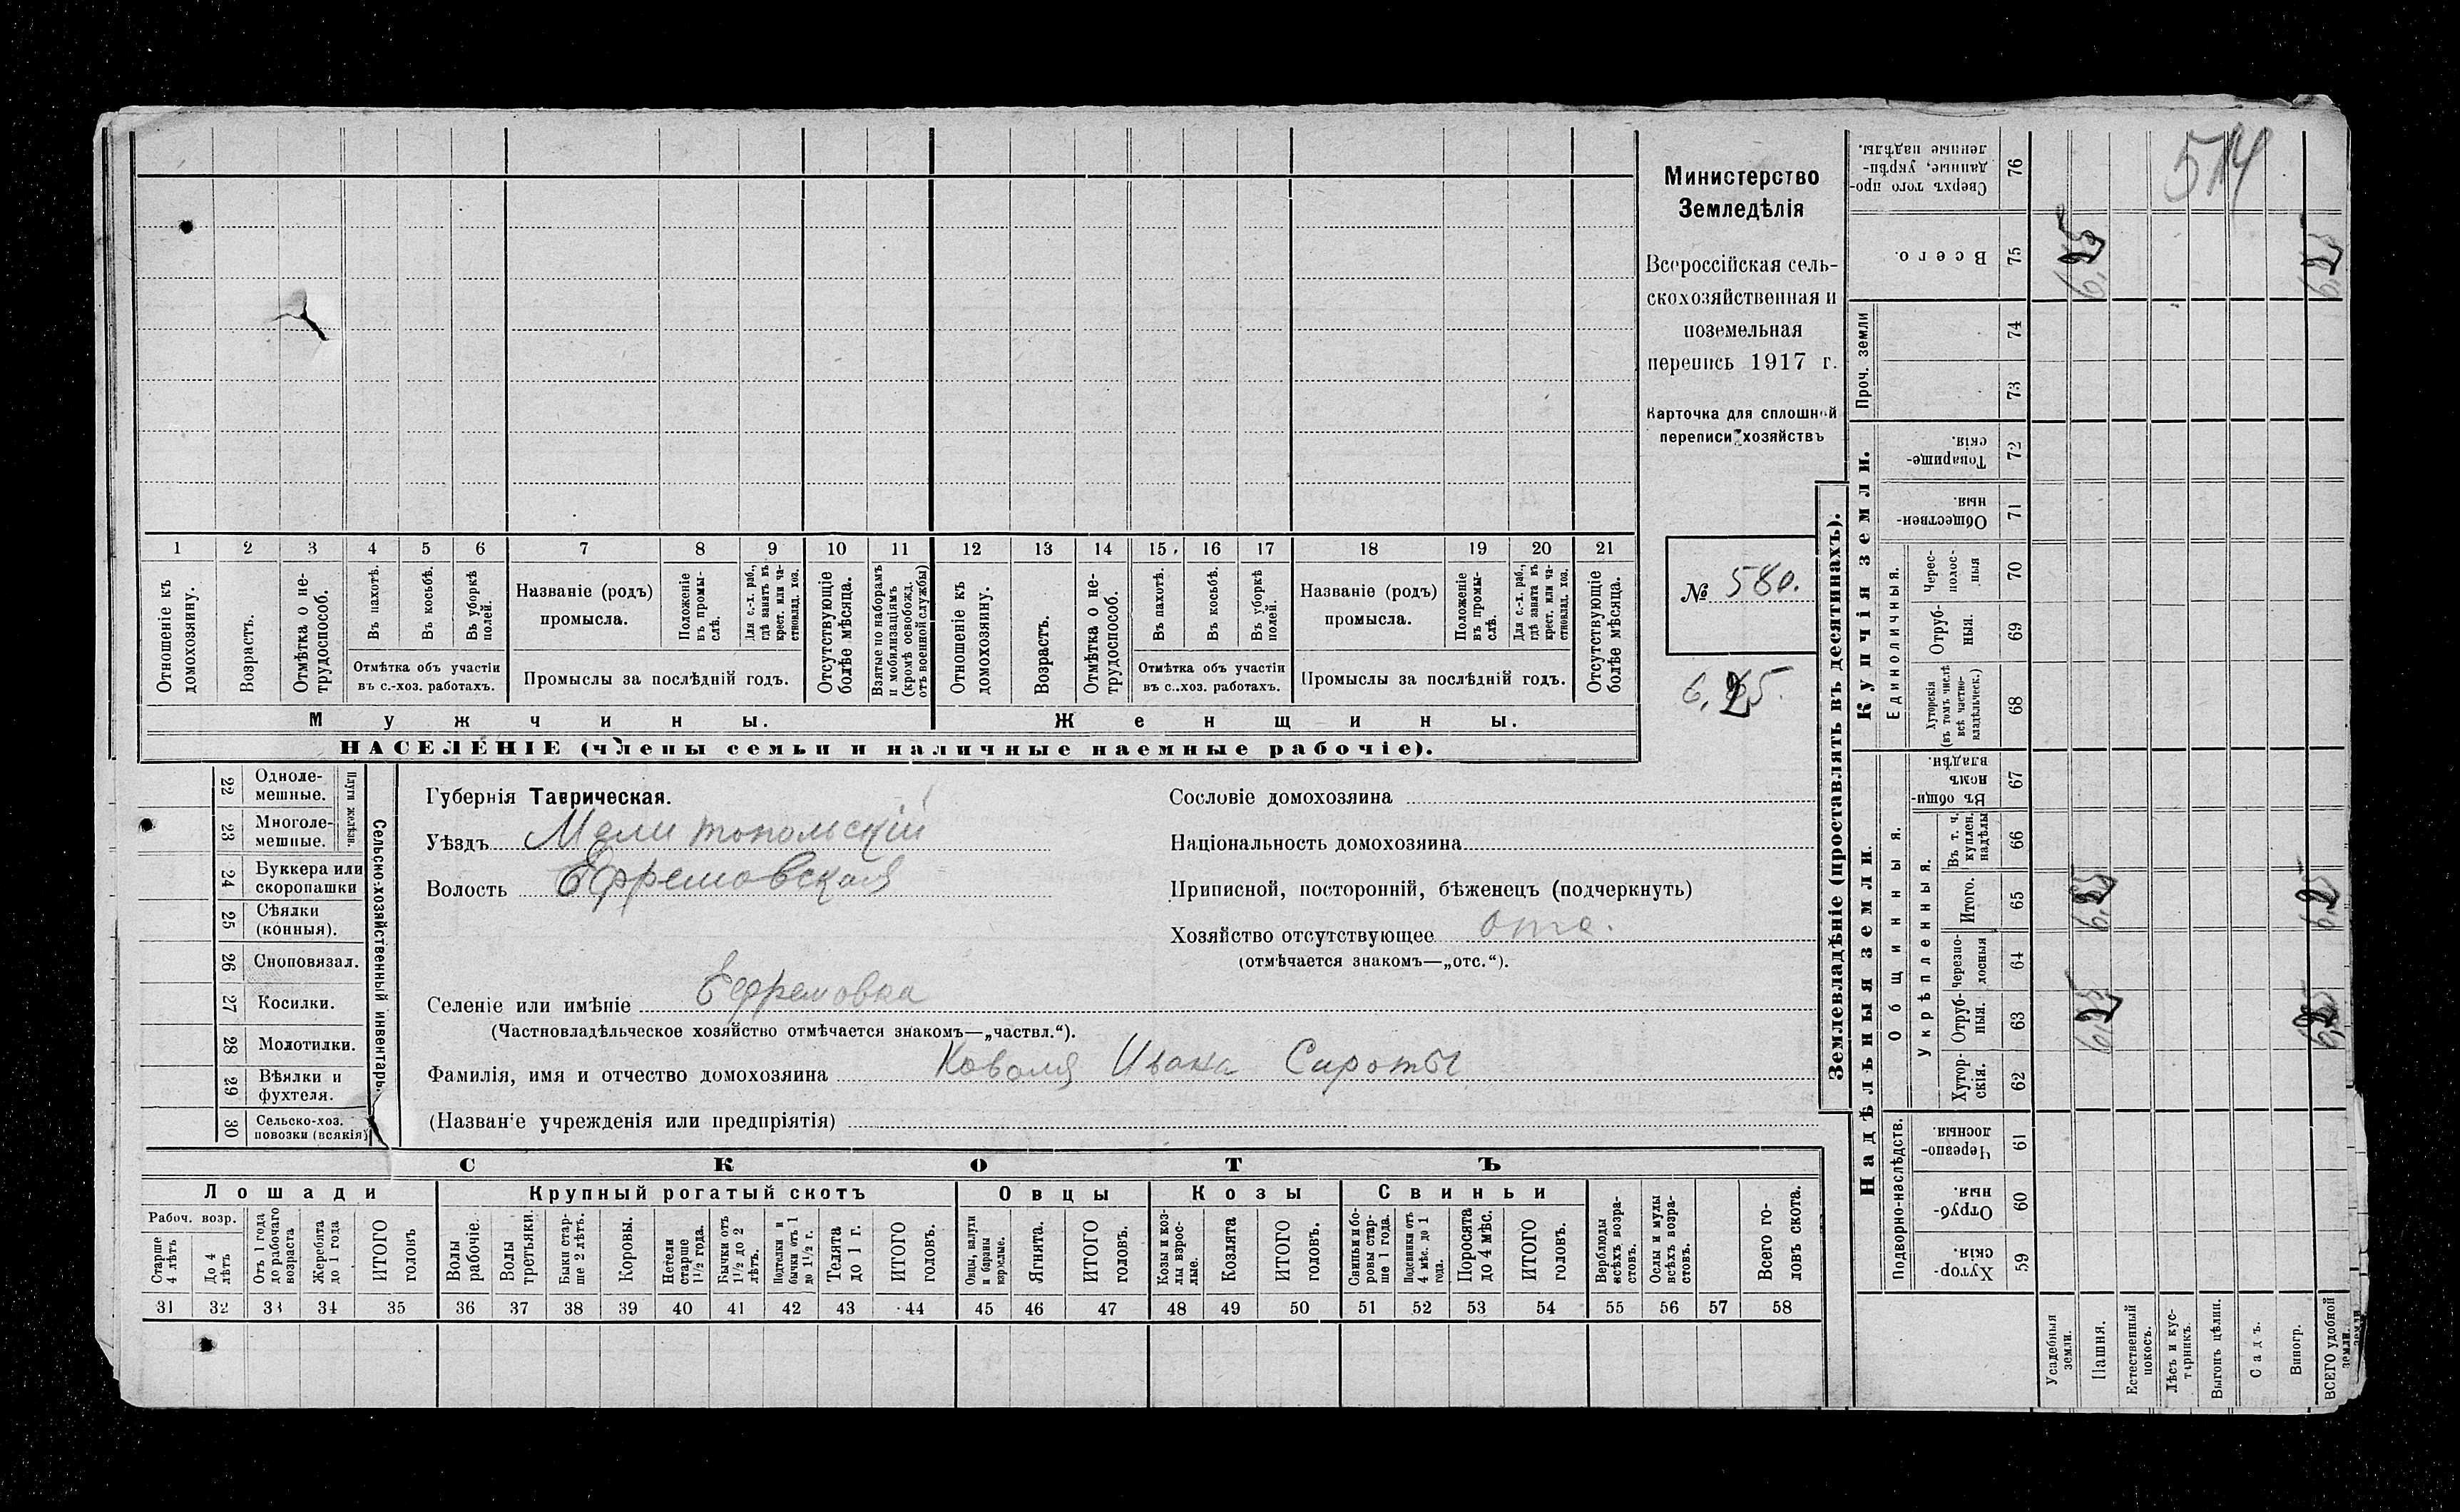 514
Министерство
Земледѣлія
Всероссійская сель-
скохозяйственная и
поземельная
перепись 1917 г.
Карточка для сплошной
переписи хозяйствъ
№ 580.
6,25.
1 2 3 4 5 6 7 8 9 10 11 12 13 14 15 16 17 18 19 20 21
Отношеніе къ домохозяину.
Возрастъ.
Отмѣтка о не-трудоспособ.
Въ пахотѣ.
Въ косьбѣ.
Въ уборкѣ полей.
Отмѣтка объ участіи
въ с.-хоз. работахъ.
Названіе (родъ)
промысла.
Положеніе въ промы-слѣ.
Для с.-х. раб., гдѣ занятъ въ крест. или ча-стновлад. хоз.
Промыслы за послѣдній годъ.
Отсутствующіе болѣе мѣсяца.
Взятые по наборамъ и мобилизаціямъ (кромѣ освобожд. отъ военной службы)
Отношеніе къ домохозяину.
Возрастъ.
Отмѣтка о не-трудоспособ.
Въ пахотѣ.
Въ косьбѣ.
Въ уборкѣ полей.
Отмѣтка объ участіи
въ с.-хоз. работахъ.
Названіе (родъ)
промысла.
Положеніе въ промы-слѣ.
Для с.-х. раб., гдѣ занята въ крест. или ча-стновлад. хоз.
Промыслы за послѣдній годъ.
Отсутствующіе болѣе мѣсяца.
Мужчины.
Женщины.
НАСЕЛЕНІЕ (члены семьи и наличные наемные рабочіе).
Сельско-хозяйственный инвентарь.
Плуги желѣзн.
22 Одноле-мешные.
23 Многоле-мешные.
24 Буккера или скоропашки
25 Сѣялки (конныя).
26 Сноповязал.
27 Косилки.
28 Молотилки.
29 Вѣялки и фухтеля.
30 Сельско-хоз. повозки (всякія)
Губернія Таврическая.
Уѣздъ Мелитопольскій
Волость Ефремовская
Селеніе или имѣніе Ефремовка
(Частновладѣльческое хозяйство отмѣчается знакомъ—„частвл.“).
Фамилія, имя и отчество домохозяина Коваля Ивана Сироты
(Названіе учрежденія или предпріятія)
Сословіе домохозяина
Національность домохозяина
Приписной, посторонній, бѣженецъ (подчеркнуть)
Хозяйство отсутствующее отс.
(отмѣчается знакомъ—„отс.“).
СКОТЪ
Лошади
Рабоч. возр.
Старше 4 лѣтъ
До 4 лѣтъ
Отъ 1 года до рабочаго возраста
Жеребята до 1 года
ИТОГО головъ
Крупный рогатый скотъ
Волы рабочіе.
Волы третьяки.
Быки стар-ше 2 лѣтъ.
Коровы.
Нетели старше 1½ года.
Бычки отъ 1½ до 2 лѣтъ.
Подтелки и бычки отъ 1 до 1½ г.
Телята до 1 г.
ИТОГО головъ.
Овцы
Овцы, валухи и бараны взрослые.
Ягнята.
ИТОГО головъ.
Козы
Козы и коз-лы взрос-лые.
Козлята
ИТОГО головъ.
Свиньи
Свиньи и бо-ровы стар-ше 1 года.
Подсвинки отъ 4 мѣс. до 1 года.
Поросята до 4 мѣс.
ИТОГО головъ.
Верблюды всѣхъ возра-стовъ.
Ослы и мулы всѣхъ возра-стовъ.
Всего го-ловъ скота.
31 32 33 34 35 36 37 38 39 40 41 42 43 44 45 46 47 48 49 50 51 52 53 54 55 56 57 58
Землевладѣніе (проставлять въ десятинахъ).
Сверхъ того про-данные, укрѣп-ленные надѣлы. 76
Всего. 75 6,25 6,25
Проч. земли
74
73
Купчія земли.
Товарище-скія. 72
Обществен-ныя 71
Единоличныя.
Черес-полос-ныя 70
Отруб-ныя. 69
Хуторскія (въ томъ числѣ всѣ частно-владѣльческ.) 68
Надѣльныя земли.
Общинныя.
Въ общи-номъ владѣн. 67
Укрѣпленныя.
Въ т. ч. куплен. надѣлы 66
Итого. 65 6,25 6,25
Черезпо-лосныя 64
Отруб-ныя. 63 6,25 6,25
Хутор-скія. 62
Подворно-наслѣдств.
Черезпо-лосныя. 61
Отруб-ныя. 60
Хутор-скія. 59
Усадебныя земли.
Пашня.
Естественный покосъ.
Лѣсъ и кус-тарникъ.
Выгонъ цѣлин.
Садъ.
Виногр.
ВСЕГО удобной земли.